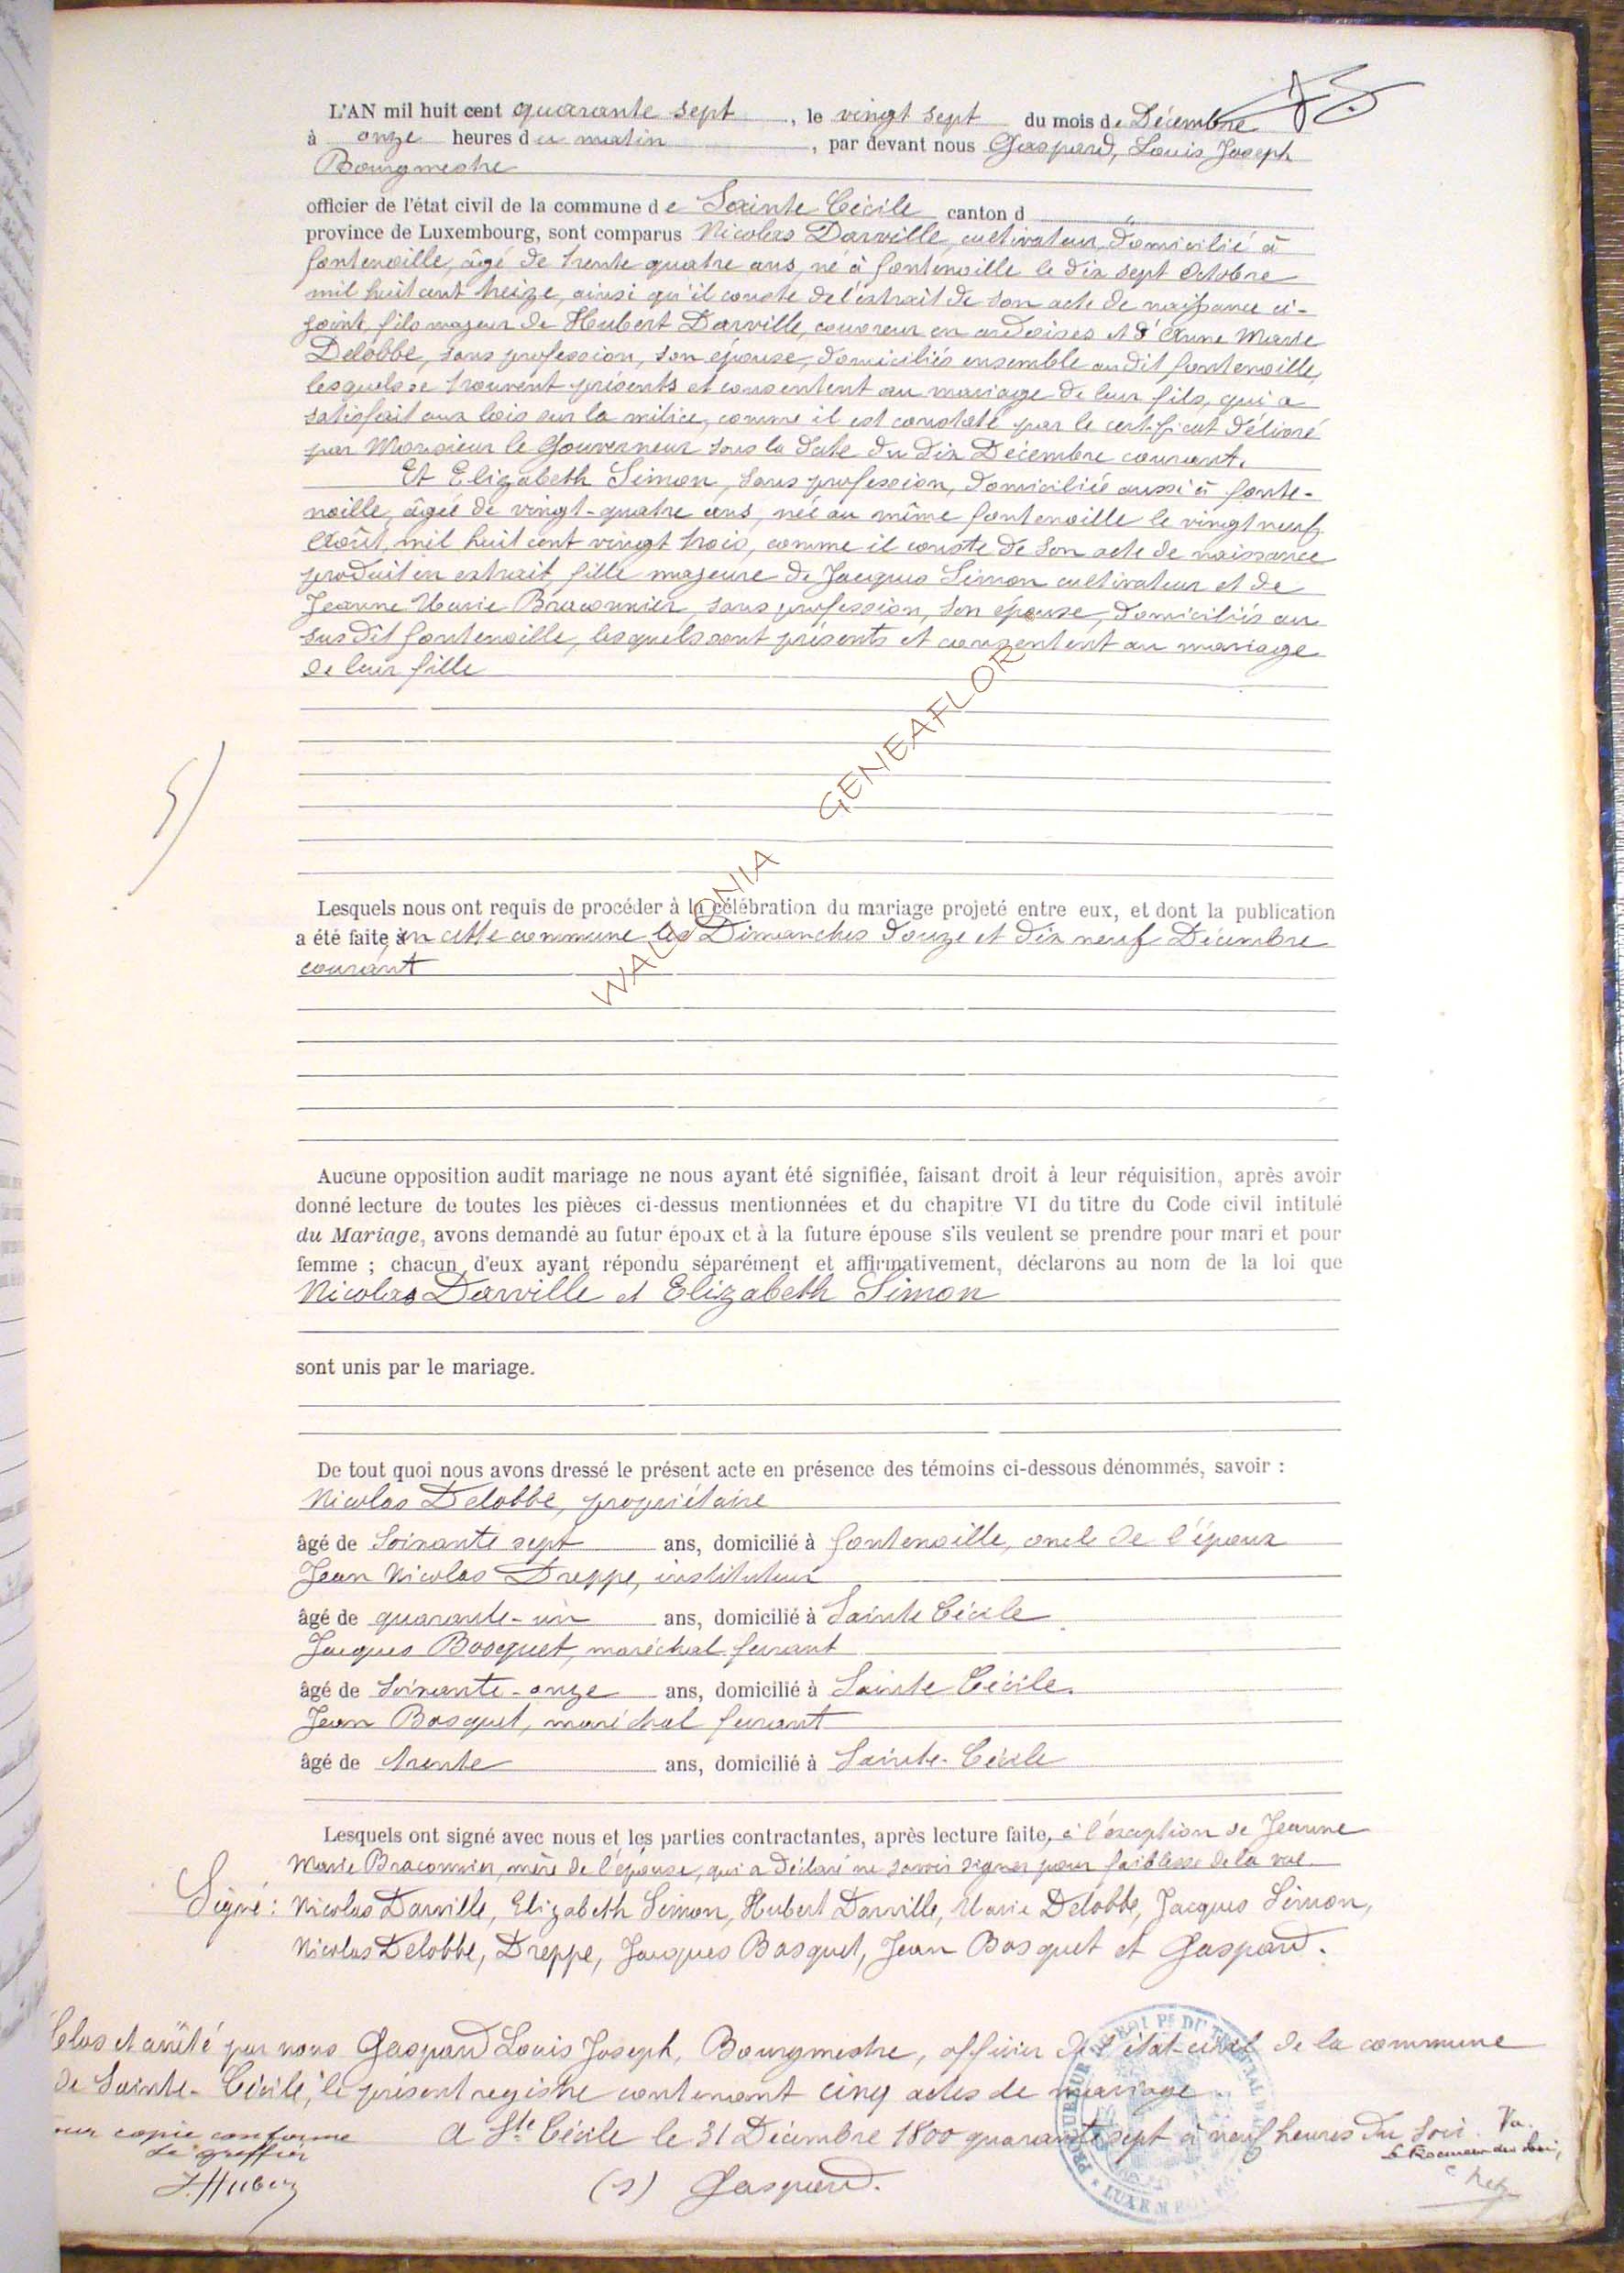 L'AN mil huit cent quarante sept, le vingt sept du mois de Décembre
à onze heures du matin, par devant nous Gaspard, Louis Joseph
Bourgmestre
officier de l'état civil de la commune de Sainte Cécile canton d
province de Luxembourg, sont comparus Nicolas Darville, cultivateur, domicilié à
fontenoille, âgé de trente quatre ans, né à fontenoille le dix sept Octobre
mil huit cent treize, ainsi qu'il conste de l'extrait de son acte de naissance ci-
joint, fils majeur de Hubert Darville, couvreur en ardoises et d'Anne Marie
Delobbe, sans profession, son épouse, domiciliés ensemble au dit fontenoille,
lesquels se trouvent présents et consentent au mariage de leur fils, qui a
satisfait aux lois sur la milice, comme il est constaté par le certificat délivré
par Monsieur le Gouverneur sous la date du dix Décembre courant.
Et Elizabeth Simon, sans profession, domiciliée aussi à fonte-
noille, âgée de vingt-quatre ans, née au même fontenoille le vingt neuf
Août, mil huit cent vingt trois, comme il conste de son acte de naissance
produit en extrait, fille majeure de Jacques Simon cultivateur et de
Jeanne Marie Braconnier, sans profession, son épouse, domiciliés au
susdit fontenoille, lesquels sont présents et consentent au mariage
de leur fille
5)
WALLONIA GENEAFLOR
Lesquels nous ont requis de procéder à la célébration du mariage projeté entre eux, et dont la publication
a été faite en cette commune les Dimanches douze et dix neuf Décembre
courant
Aucune opposition audit mariage ne nous ayant été signifiée, faisant droit à leur réquisition, après avoir
donné lecture de toutes les pièces ci-dessus mentionnées et du chapitre VI du titre du Code civil intitulé
du Mariage, avons demandé au futur époux et à la future épouse s'ils veulent se prendre pour mari et pour
femme ; chacun d'eux ayant répondu séparément et affirmativement, déclarons au nom de la loi que
Nicolas Darville et Elizabeth Simon
sont unis par le mariage.
De tout quoi nous avons dressé le présent acte en présence des témoins ci-dessous dénommés, savoir :
Nicolas Delobbe, propriétaire
âgé de soixante sept ans, domicilié à fontenoille, oncle de l'époux
Jean Nicolas Dreppe, instituteur
âgé de quarante-un ans, domicilié à Sainte Cécile
Jacques Bosquet, maréchal ferrant
âgé de soixante-onze ans, domicilié à Sainte Cécile.
Jean Bosquet, maréchal ferrant
âgé de trente ans, domicilié à Sainte-Cécile
Lesquels ont signé avec nous et les parties contractantes, après lecture faite, à l'exception de Jeanne
Marie Braconnier, mère de l'épouse, qui a déclaré ne savoir signer pour faiblesse de la vue.
Signé : Nicolas Darville, Elizabeth Simon, Hubert Darville, Marie Delobbe, Jacques Simon,
Nicolas Delobbe, Dreppe, Jacques Bosquet, Jean Bosquet et Gaspard.
Clos et arrêté par nous Gaspard Louis Joseph, Bourgmestre, officier de l'état-civil de la commune
de Sainte-Cécile, le présent registre contenant cinq actes de mariage.
A Ste Cécile le 31 Décembre 1800 quarante sept à neuf heures du soir.
(s) Gaspard.
our copie conforme
le greffier
J. Hubery
Vu.